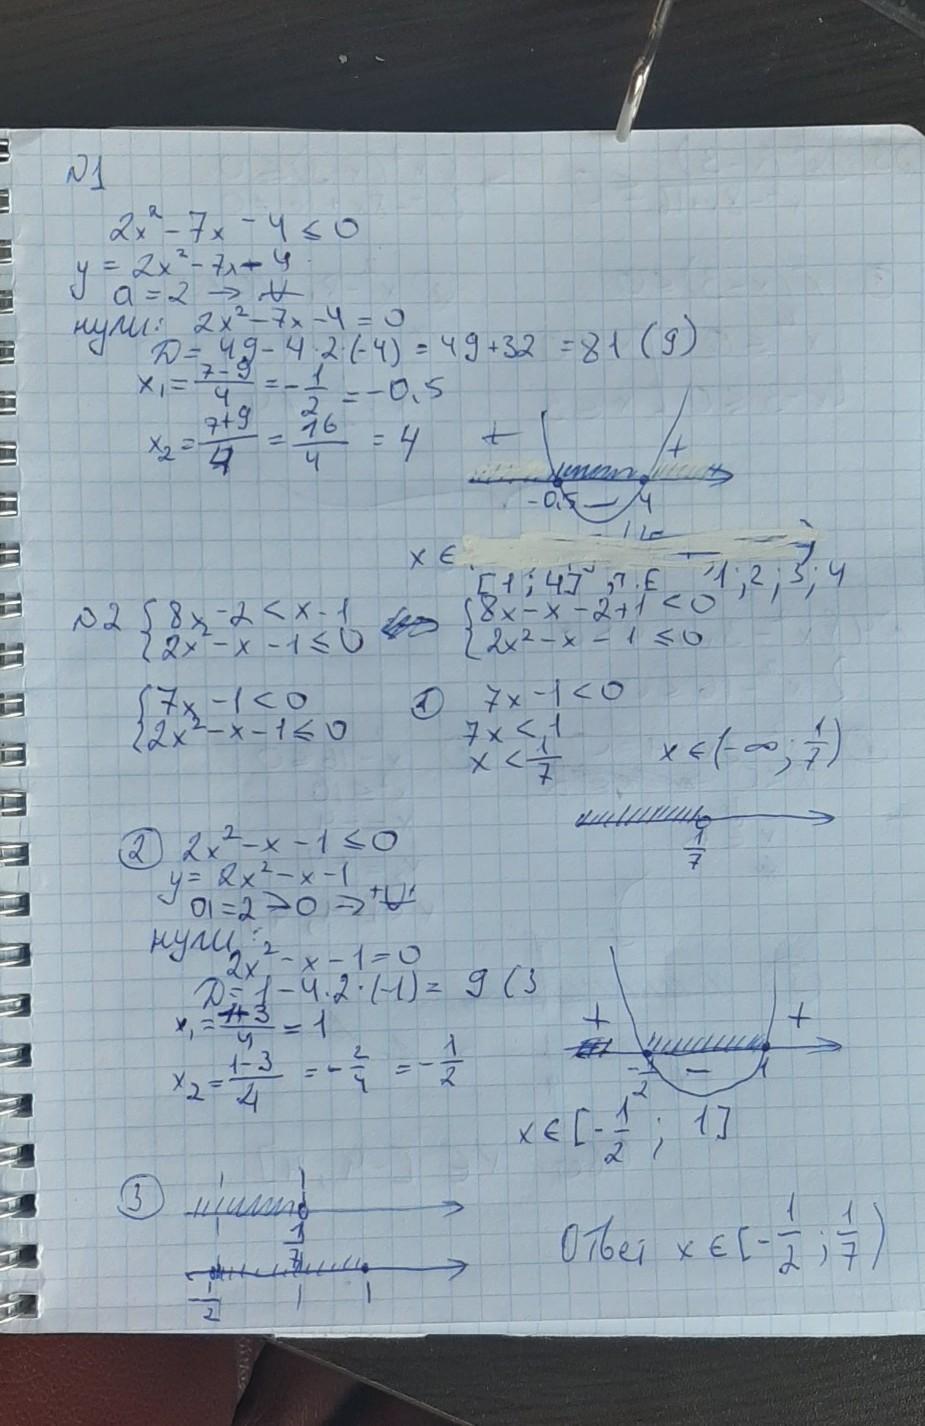 №1
2x² - 7x - 4 ≤ 0
y = 2x² - 7x - 4
a = 2 →
нули: 2x² - 7x - 4 = 0
D = 49 - 4·2·(-4) = 49 + 32 = 81 (9)
x₁ = (7-9)/4 = -1/2 = -0,5
x₂ = (7+9)/4 = 16/4 = 4
+ +
-0,5 — 4
x ∈
[1; 4], т.е 1; 2; 3; 4
№2 { 8x - 2 < x - 1 ⇔ { 8x - x - 2 + 1 < 0
{ 2x² - x - 1 ≤ 0 { 2x² - x - 1 ≤ 0
{ 7x - 1 < 0 ① 7x - 1 < 0
{ 2x² - x - 1 ≤ 0 7x < 1
x < 1/7 x ∈ (-∞; 1/7)
1/7
② 2x² - x - 1 ≤ 0
y = 2x² - x - 1
a = 2 > 0 →
нули:
2x² - x - 1 = 0
D = 1 - 4·2·(-1) = 9 (3
x₁ = (1+3)/4 = 1
x₂ = (1-3)/4 = -2/4 = -1/2
+ +
-1/2 — 1
x ∈ [-1/2; 1]
③
1/7
-1/2 1
Ответ x ∈ [-1/2; 1/7)